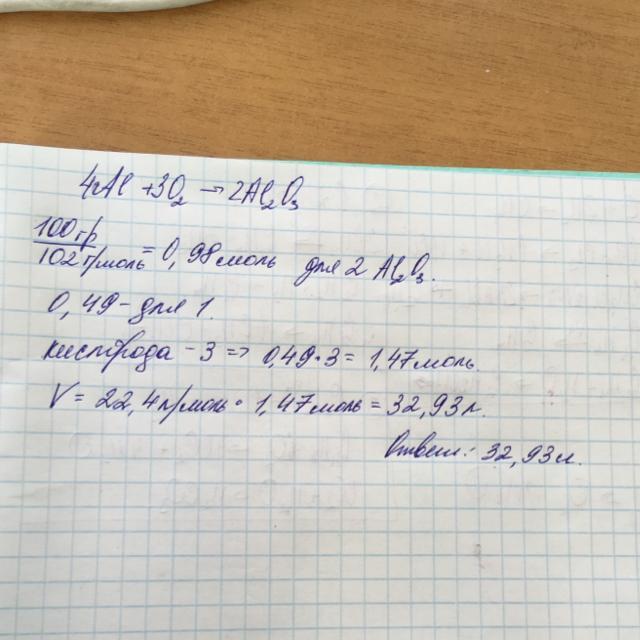 4Al + 3O₂ → 2Al₂O₃
100 гр / 102 г/моль = 0,98 моль для 2 Al₂O₃.
0,49 - для 1.
кислорода - 3 => 0,49·3 = 1,47 моль.
V = 22,4 л/моль · 1,47 моль = 32,93 л.
Ответ: 32,93 л.